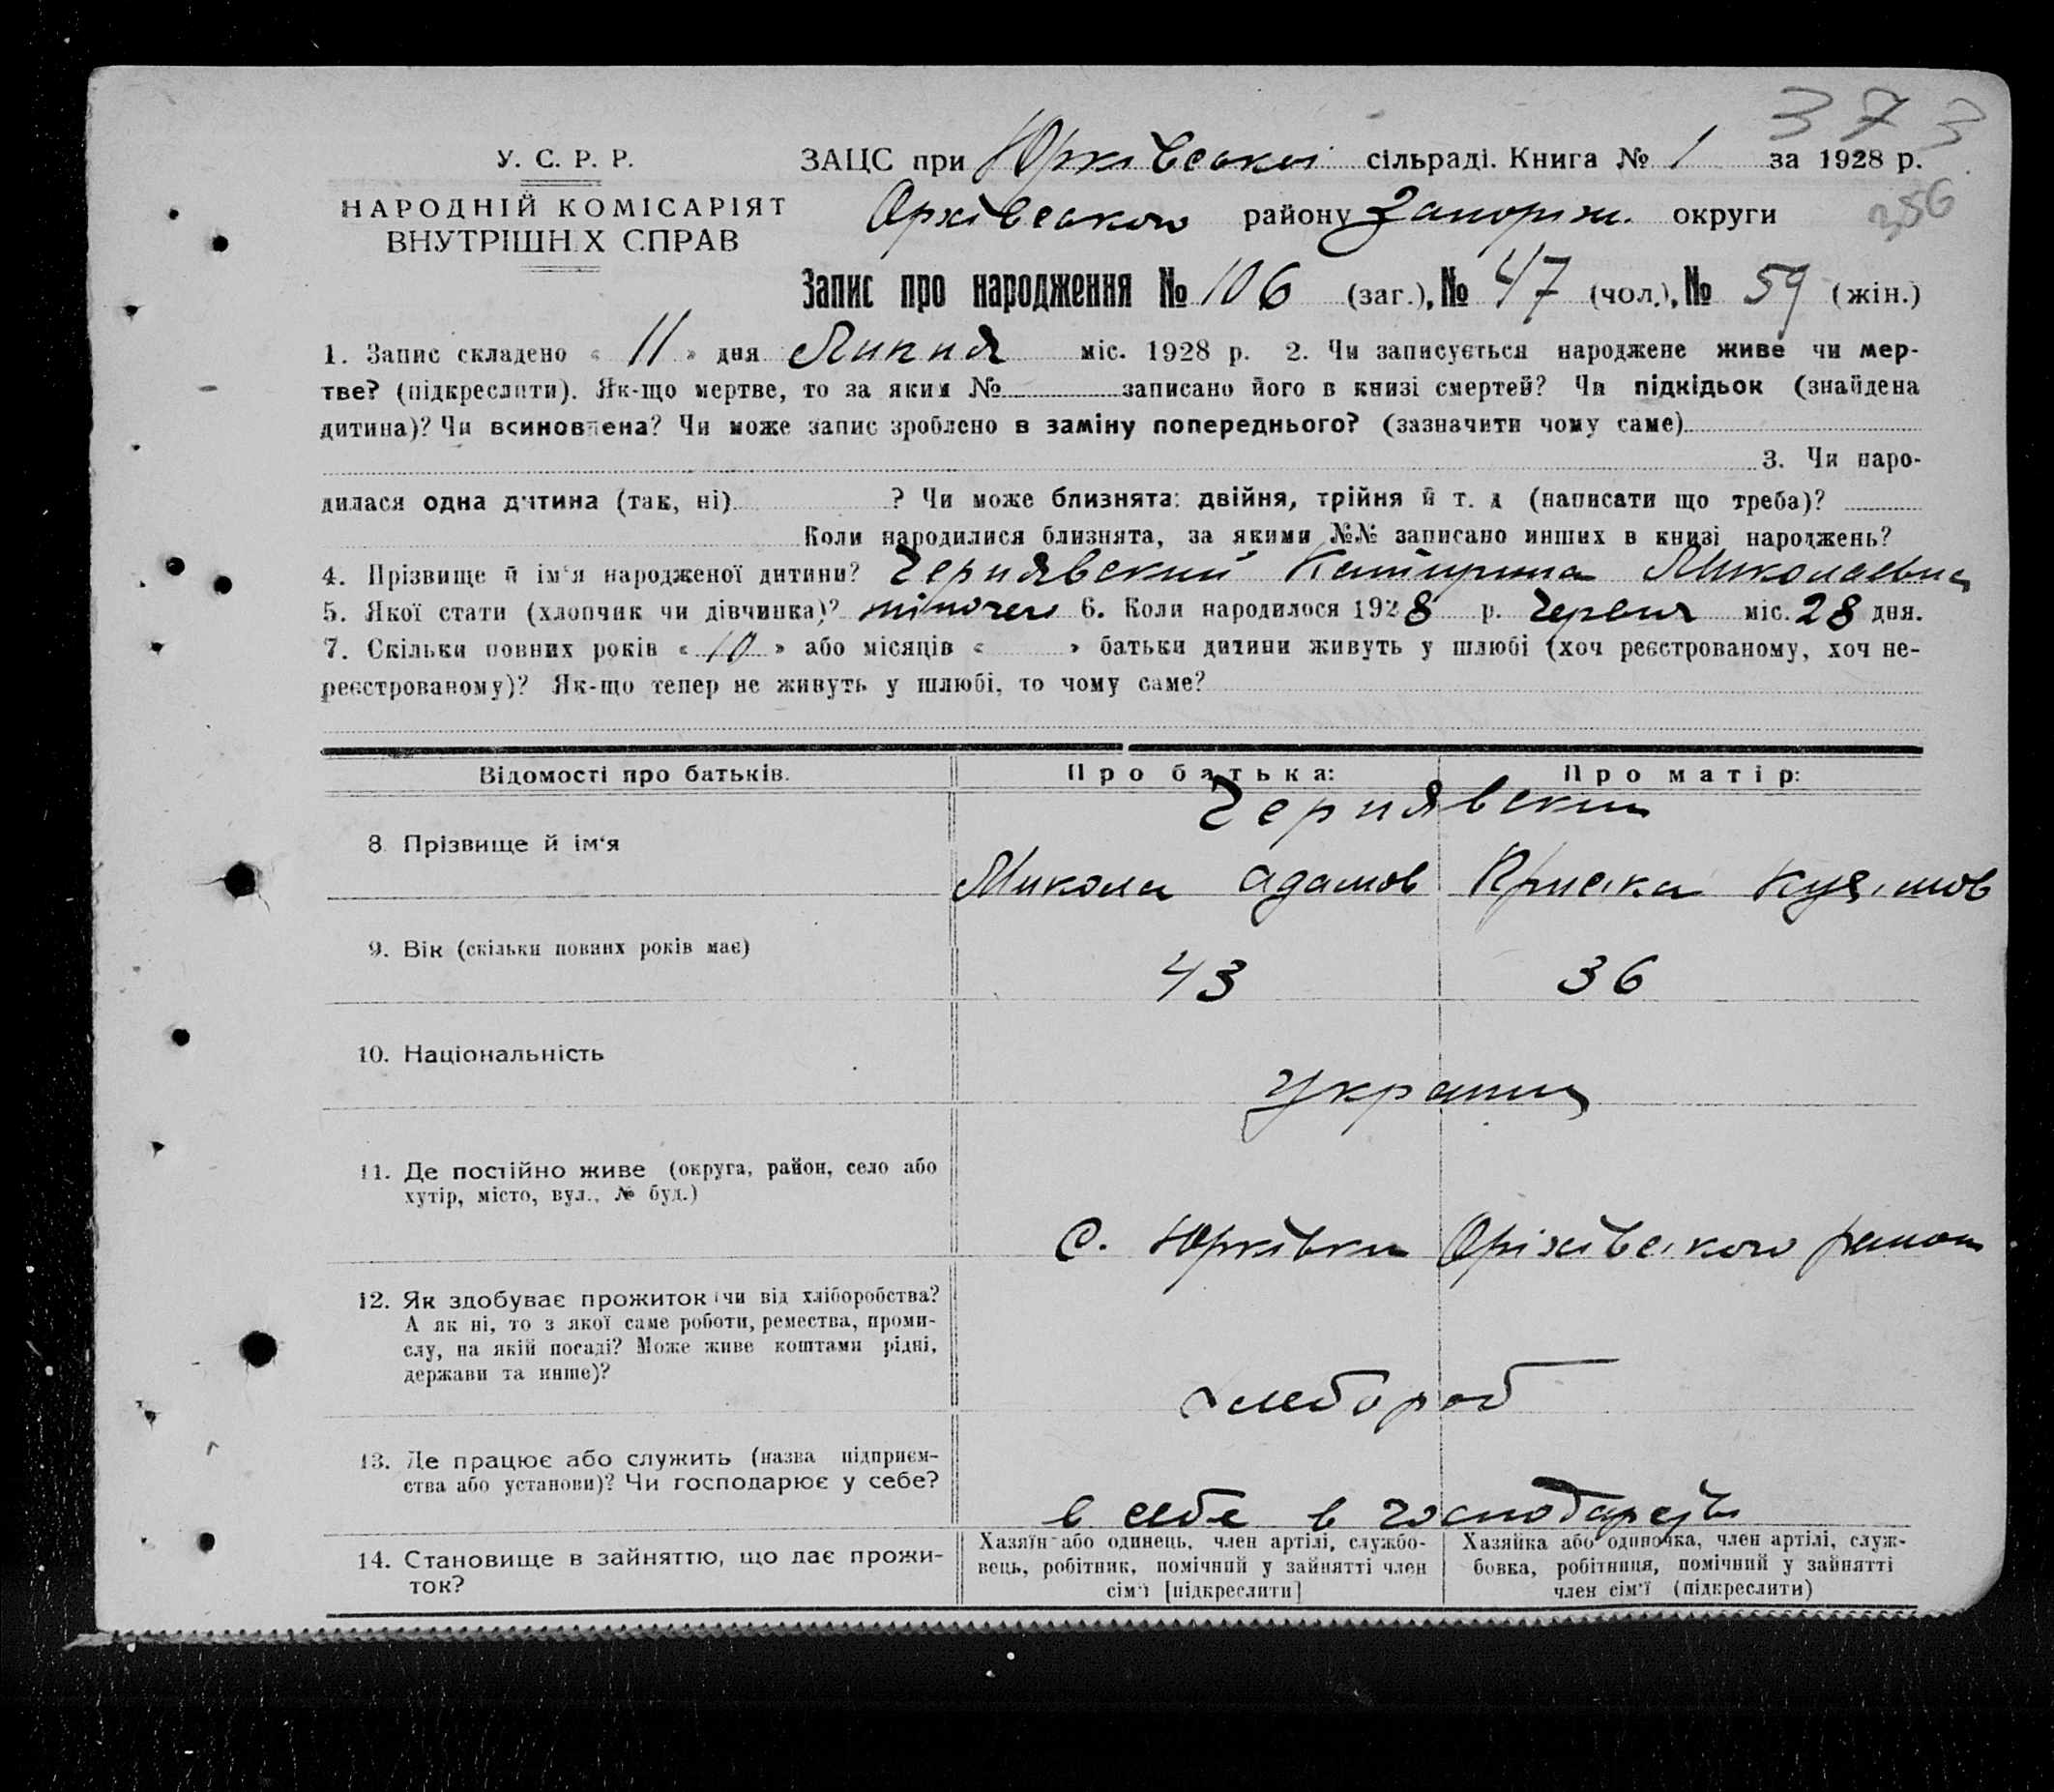 373
У. С. Р. Р.
НАРОДНІЙ КОМІСАРІЯТ
ВНУТРІШН Х СПРАВ
ЗАЦС при Юрківськи сільраді. Книга № 1 за 1928 р.
Оріхівського району Запоріж. округи
356
Запис про народження № 106 (заг.), № 47 (чол.), № 59 (жін.)
1. Запис складено « 11 » дня Липня міс. 1928 р. 2. Чи записується народжене живе чи мер-
тве? (підкреслити). Як-що мертве, то за яким № записано його в книзі смертей? Чи підкідьок (знайдена
дитина)? Чи всиновлена? Чи може запис зроблено в заміну попереднього? (зазначити чому саме)
3. Чи наро-
дилася одна дитина (так, ні) ? Чи може близнята: двійня, трійня й т. д (написати що треба)?
Коли народилися близнята, за якими №№ записано инших в книзі народжень?
4. Прізвище й ім‘я народженої дитини? Чернявский Катирина Миколаевна
5. Якої стати (хлопчик чи дівчинка)? 6. Коли народилося 1928 р. Червня міс. 28 дня.
7. Скільки повних років « 10 » або місяців « » батьки дитини живуть у шлюбі (хоч реєстрованому, хоч не-
реєстрованому)? Як-що тепер не живуть у шлюбі, то чому саме?
Відомості про батьків. Про батька: Про матір:
Чернявский
8 Прізвище й ім‘я
Микола Адамов Кузимов
9. Вік (скільки повних років має) 43 36
10. Національність
Украинц
11. Де постійно живе (округа, район, село або
хутір, місто, вул., № буд.)
С. Юрківки Оріхівского району
12. Як здобуває прожиток чи від хліборобства?
А як ні, то з якої саме роботи, ремества, проми-
слу, на якій посаді? Може живе коштами рідні,
держави та инше)?
хлебороб
13. Де працює або служить (назва підприєм-
ства або установи)? Чи господарює у себе?
в себе в господарстві
14. Становище в зайняттю, що дає прожи-
ток?
Хазяїн або одинець, член артілі, службо-
вець, робітник, помічний у зайнятті член
сім‘ї [підкреслити]
Хазяйка або одиночка, член артілі, служ-
бовка, робітниця, помічний у зайнятті
член сім‘ї (підкреслити)